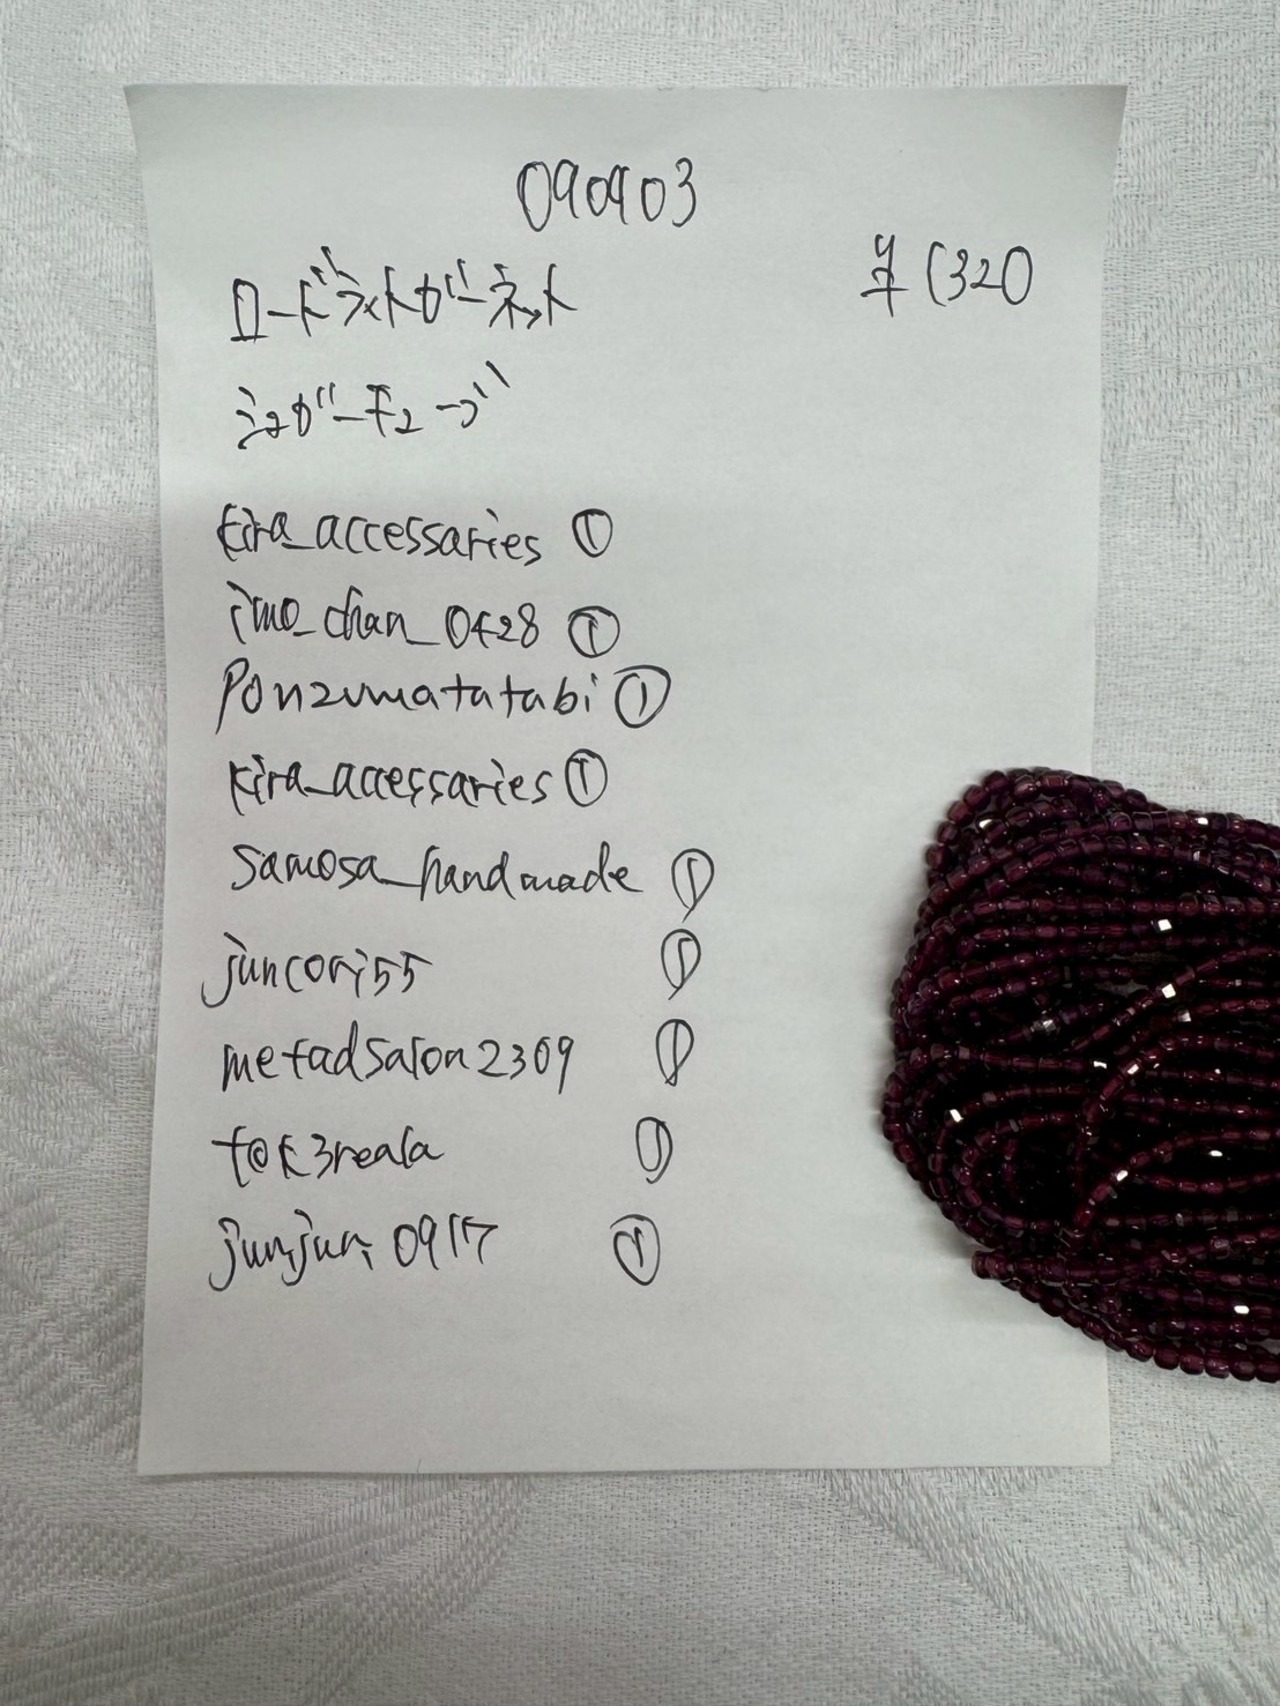 090903
ロードライトガーネット
半 1320
シュガーチューブ
kira_accessaries ①
imo_chan_0428 ①
Ponzumatatabi ①
kira_accessaries ①
samosa_handmade ①
juncori55 ①
metadsalon2309 ①
t@k3reala ①
junjun, 0917 ①